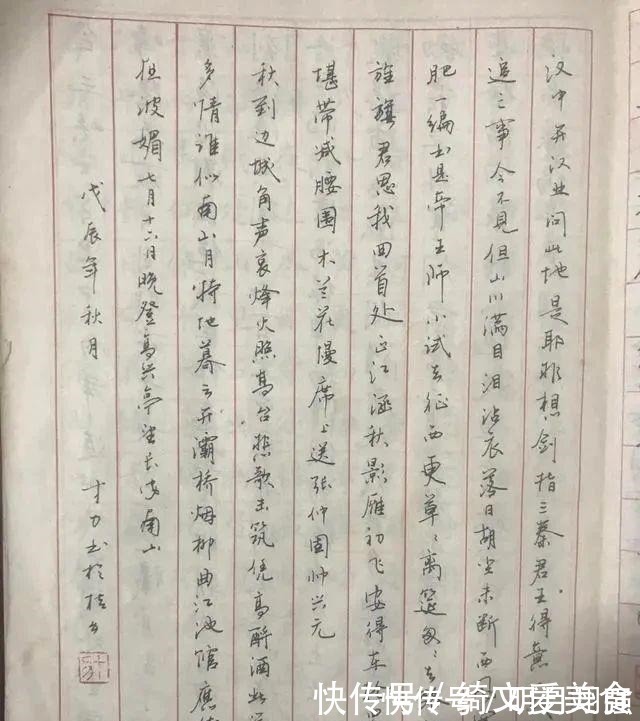 汉中开汉业问此地是耶非想剑指三秦君王得意
追亡事今不见但山川满目泪沾衣落日胡尘未断西风
肥一编书是帝王师小试去征西更草草离筵匆匆去
旌旗君思我回首处正江涵秋影雁初飞安得车轮
堪带减腰围木兰花慢席上送张仲固帅兴元
秋到边城角声哀烽火照高台悲歌击筑凭高酹酒此
多情谁似南山月特地暮云开灞桥烟柳曲江池馆应
狂波媚七月十六日晚登高兴亭望长安南山
戊辰年秋月
才力书于桂台
快传号/八明月
快传号/绮文瑗美食